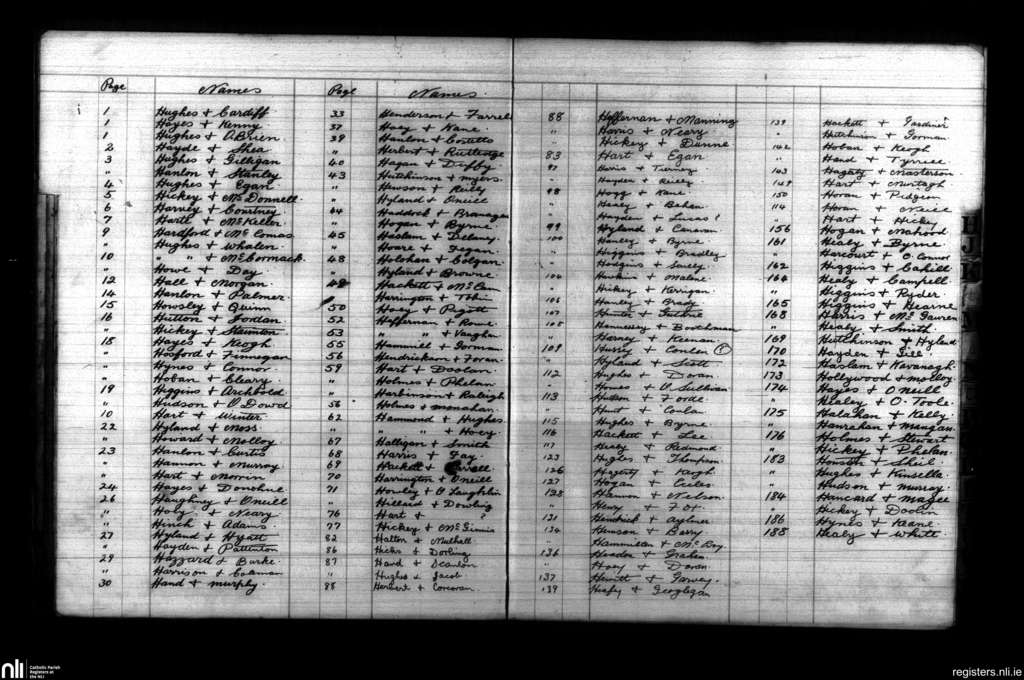 Page Names Page Names
1 Hughes + Cardiff
1 Hayes + Kenny
1 Hughes + O'Brien
2 Hayde + Shea
3 Hughes + Gilligan
" Hanlon + Stanley
4 Hughes + Egan
5 Hickey + McDonnell
6 Harney + Courtney
7 Harte + McKeller
9 Hardford + McComas
" Hughes + Whalen
10 " " + McCormack
" Howe + Day
12 Hall + Morgan
14 Hanlon + Palmer
15 Howsley + Quinn
16 Hutton + Jordan
" Hickey + Staunton
18 Hayes + Keogh
" Hosford + Finnegan
" Hynes + Connor
" Hoban + Cleary
19 Higgins + Archbold
" Hudson + O'Dowd
10 Hart + Winter
22 Hyland + Moss
" Howard + Molloy
23 Hanlon + Curtis
" Hannon + Murray
" Hart + Morrin
24 Hayes + Donohue
26 Haughney + O'Neill
" Hoey + Neary
" Hinch + Adams
27 Hyland + Hyatt
" Hayden +
29 Hazzard + Burke
" Harrison + Colman
30 Hand + Murphy
33 Henderson + Farrell
37 Hoey + Kane
39 Hanlon + Costello
" Herbert + Rutledge
40 Hagan + Duffy
43 Hutchinson + Myers
" Hewson + Reilly
" Hyland + O'Neill
44 Haddock + Branagan
" Hogan + Byrne
45 Haslam + Delaney
" Hoare + Fegan
48 Holohan + Colgan
" Hyland + Browne
48 Hackett + McCann
" Harrington + Tobin
50 Hoey + Pigott
52 Heffernan + Rowe
53 " " + Vaughan
55 Hammill + Gorman
56 Hendricken + Foran
59 Hart + Doolan
" Holmes + Phelan
" Harbinson + Raleigh
56 Holmes + Monahan
62 Hammond + Hughes
" " + Hoey
67 Halligan + Smith
68 Harris + Fay
69 Hackett +
70 Harrington + O'Neill
71 Howley + O'Laughlin
" Hillard + Dowling
76 Hart +
77 Hickey + McGinnis
82 Hatton + Mulhall
86 Hicks + Dorling
87 Hand + Scanlon
" Hughes + Jacob
88 Herbert + Corcoran
88 Heffernan + Manning
" Harris + Neary
" Hickey + Dunne
83 Hart + Egan
97 Harris + Tierney
" Hayden + Reilly
98 Hogg + Kane
" Healy + Behan
" Hayden + Lucas
99 Hyland + Canavan
100 Hanley + Byrne
" Higgins + Bradley
" Hodgins + Scully
104 Hawkins + Malone
" Hickey + Kerrigan
106 Hanley + Brady
107 Hunter + Guthrie
108 Hennessey + Boothman
" Harvey + Keenan
109 Hussey + Conlen
" Hyland + Scott
112 Hughes + Doran
" Homes + O'Sullivan
113 Hudson + Forde
" Hunt + Conlan
115 Hughes + Byrne
116 Hackett + Lee
117 Healy + Redmond
123 Hughes + Thompson
126 Hagerty + Keogh
127 Hogan + Eccles
128 Hannon + Nelson
" Henry + Fox
131 Hendrick + Aylmer
134 Henson + Barry
" Hammilton + McBoy
136 Headon + Graham
" Hoey + Doran
137 Hewitt + Garvey
139 Heafy + Geoghegan
139 Hackett + Gardiner
" Hutchinson + Gorman
142 Hoban + Keogh
" Hand + Tyrrell
143 Hagerty + Masterson
149 Hart + Murtagh
150 Horan + Pidgeon
114 Horan + Neill
" Hart + Hickey
156 Hogan + Mahood
161 Healy + Byrne
" Harcourt + O'Connor
162 Higgins + Cahill
164 Healy + Campbell
" Higgins + Ryder
165 Higgins + Hearne
168 Harris + McGauren
" Healy + Smith
169 Hutchinson + Hyland
170 Hayden + Gill
172 Haslam + Kavanagh
173 Hollywood + Molloy
174 Hayes + O'Neill
" Healey + O'Toole
175 Halahan + Kelly
" Hanrahan + Mangan
176 Holmes + Stewart
" Hickey + Phelan
183 Honson + Sheil
" Hughes + Kinsella
" Hudson + Murray
184 Hancard + Magee
" Hickey + Doolin
186 Hynes + Keane
188 Healy + White
nli
Catholic Parish
Registers at
the NLI
registers.nli.ie